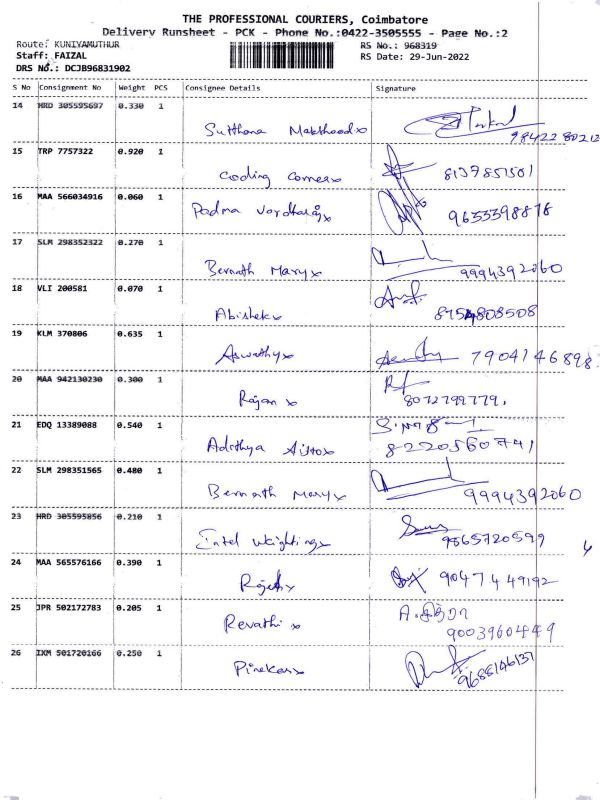 THE PROFESSIONAL COURIERS, Coimbatore
Delivery Runsheet - PCK - Phone No.:0422-3505555 - Page No.:2
Route: KUNIYAMUTHUR RS No.: 968319
Staff: FAIZAL RS Date: 29-Jun-2022
DRS No.: DCJB96831902
S No Consignment No Weight PCS Consignee Details Signature
14 HRD 305595697 0.330 1
98422 80212
15 TRP 7757322 0.920 1
Coding Corner 8137851501
16 MAA 566034916 0.060 1
Padma 9655598878
17 SLM 298352322 0.270 1
Bernath Mary 9994392060
18 VLI 200581 0.070 1
Abishek 8754808508
19 KLM 370806 0.635 1
Aswathy 7904146898
20 MAA 942130230 0.300 1
Rajan 8072799779
21 EDQ 13389088 0.540 1
Adithya 8220560741
22 SLM 298351565 0.480 1
Bernath Mary 9994392060
23 HRD 305595856 0.210 1
9565720599
24 MAA 565576166 0.390 1
90474 49192
25 JPR 502172783 0.205 1
Revathi
9003960449
26 IXM 501720166 0.250 1
9688146137